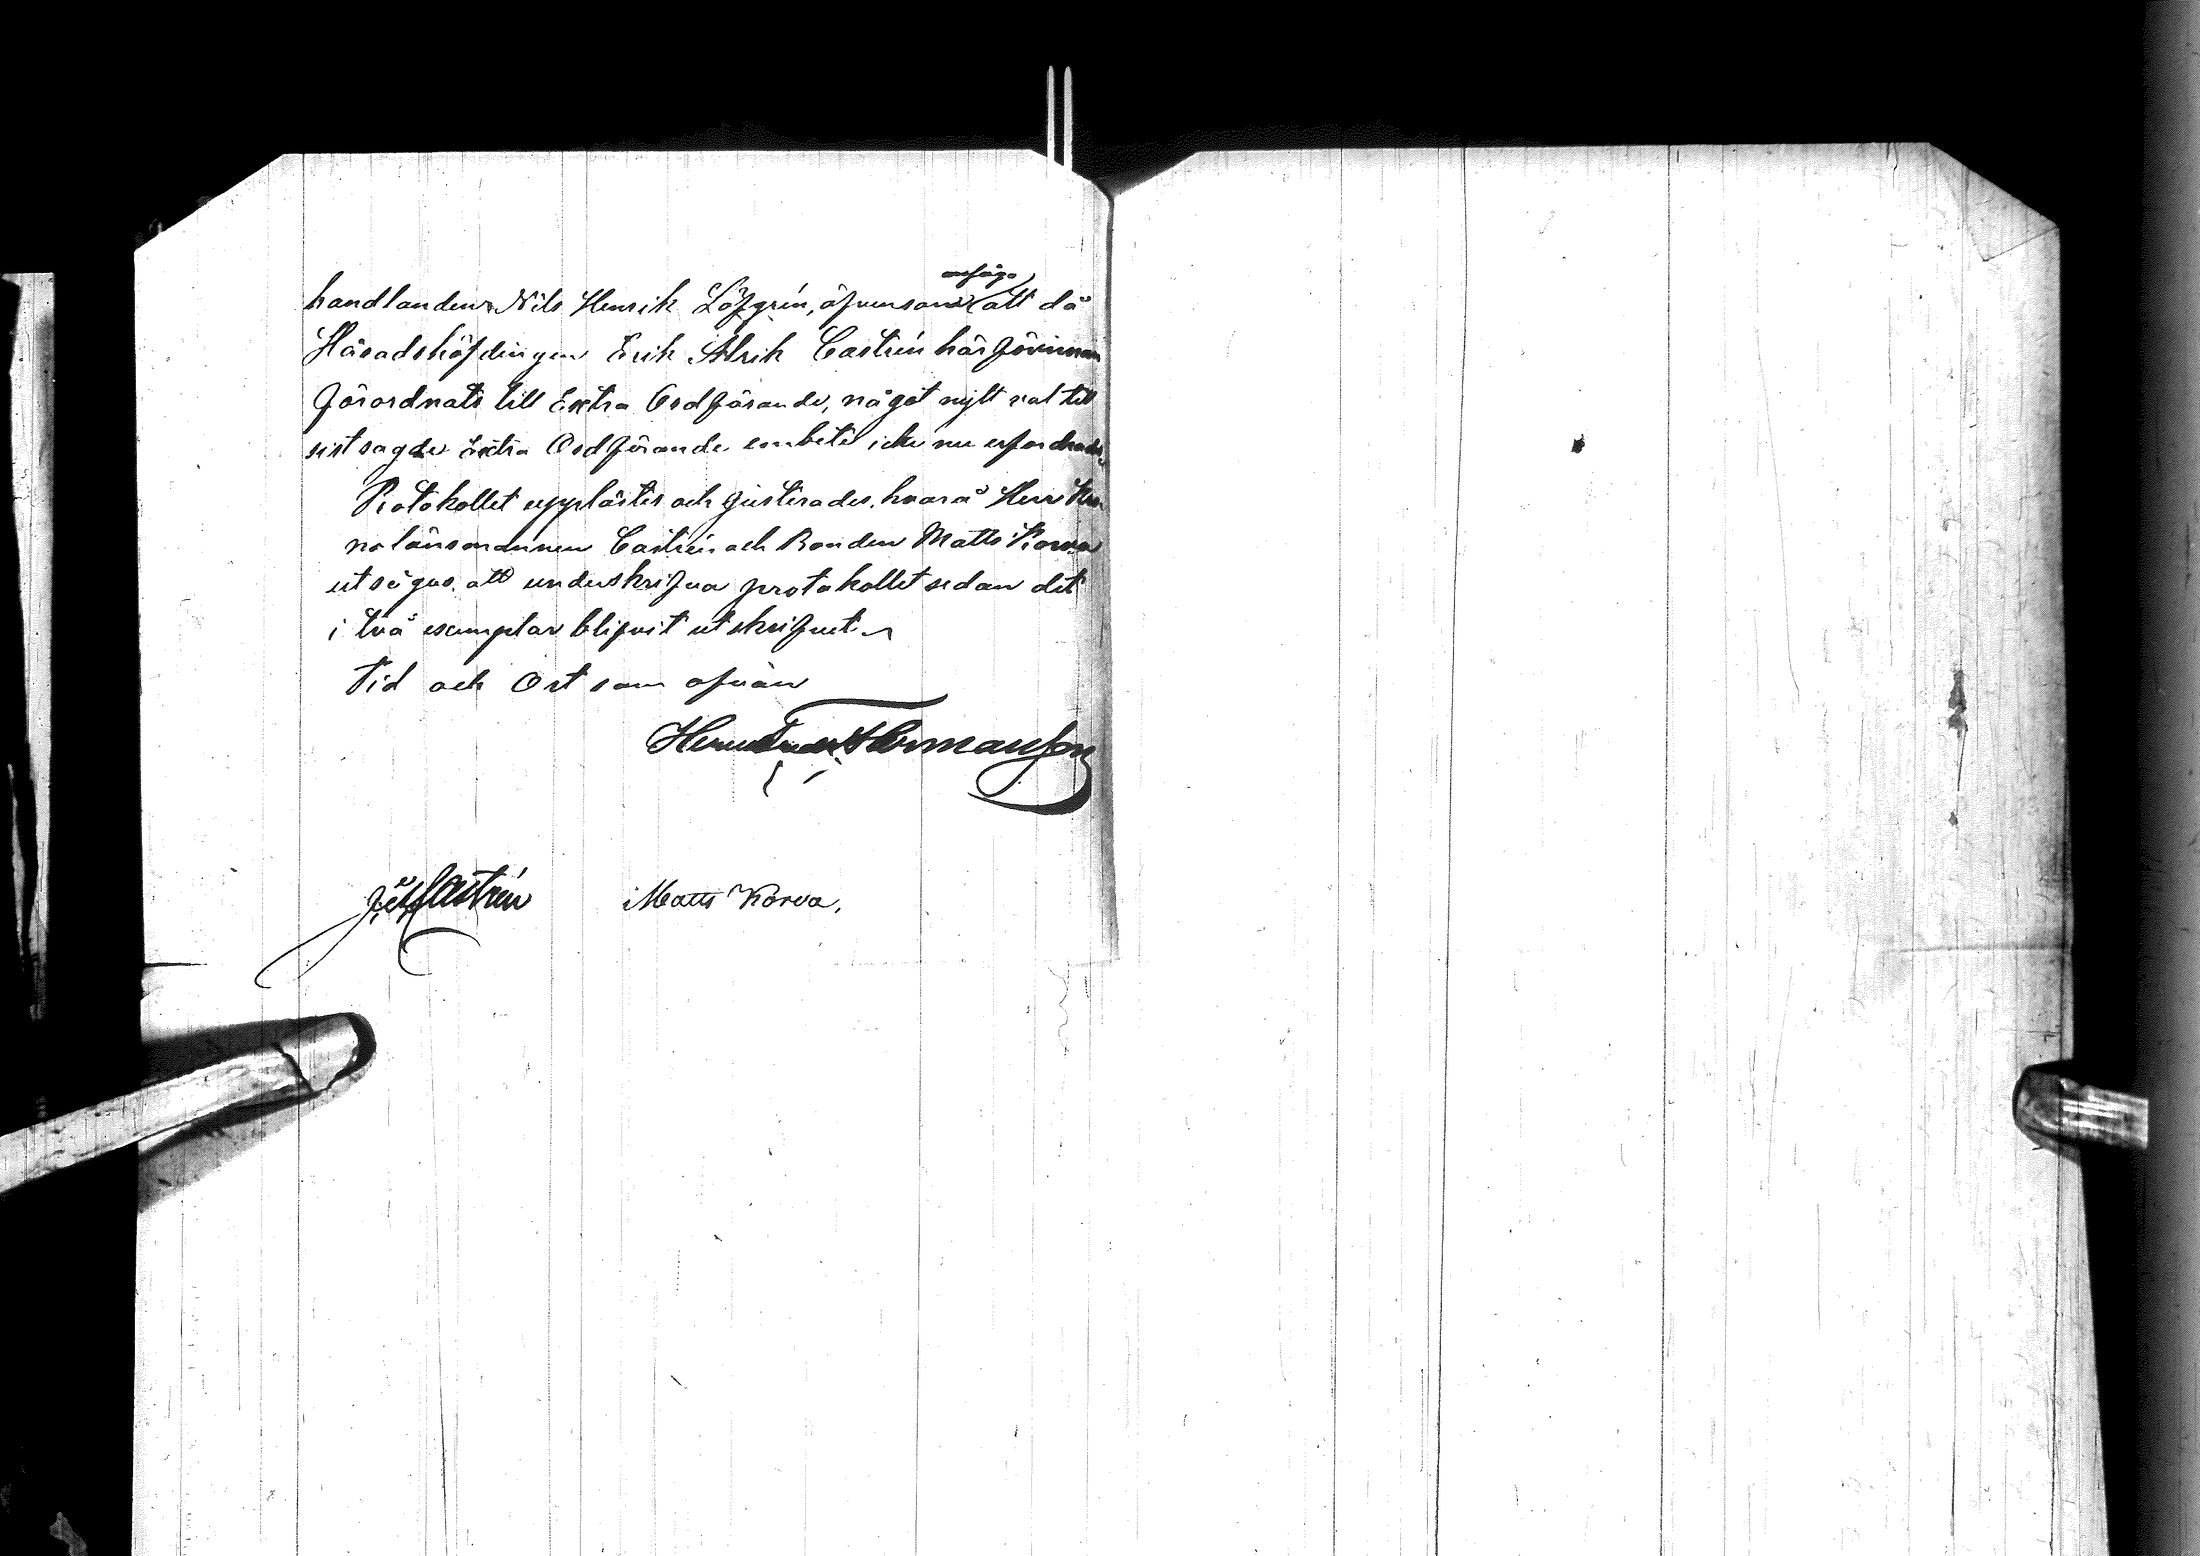 ansågs
handlanden Nils Henrik Löfgrén, äfvensom att då
Häradshöfdingen Erik Alrik Castrén härförinnan
förordnats till Extra Ordförande, något nytt val till
sistsagde Extra Ordförande embete icke nu erfordrades.
Protokollet upplästes och justerades, hvarå Herr Kro
nolänsmannen Castrén och Bonden Matts Korva
utsågos att underskrifva protokollet sedan det
i två exemplar blifvit utskrifvet
Tid och Ort som ofvan
Hermanson
Castrén Matts Korva.